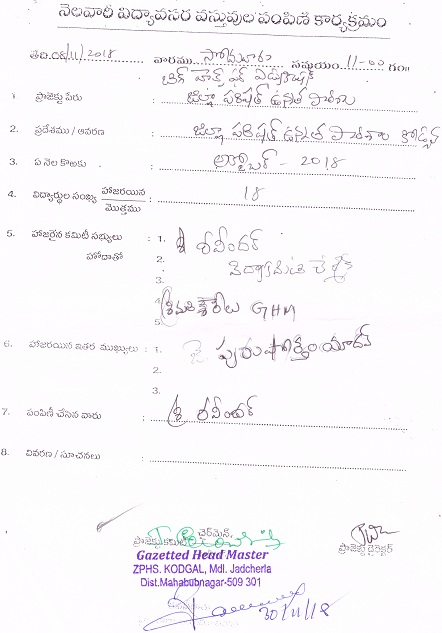 నెలవారి విద్యావసర వస్తువుల పంపిణి కార్యక్రమం
తేది.06/11/2018 వారము సోమవారం సమయం. 11-00 గం॥
1. ప్రాజెక్టు పేరు : జిల్లా పరిషత్ ఉన్నత పాఠశాల
2. ప్రదేశము / ఆవరణ : జిల్లా పరిషత్ ఉన్నత పాఠశాల కోడ్గల్
3. ఏ నెల కొఱకు : అక్టోబర్ - 2018
4. విద్యార్థుల సంఖ్య హాజరయిన / మొత్తము : 18
5. హాజరైన కమిటీ సభ్యులు : 1. శ్రీ రవీందర్
హోదాతో 2.
3.
4. శ్రీమతి GHM
5.
6. హాజరయిన ఇతర ముఖ్యులు : 1. జె. పురుషోత్తం యాదవ్
2.
3.
7. పంపిణీ చేసిన వారు : శ్రీ రవీందర్
8. వివరణ / సూచనలు :
చైర్మెన్,
ప్రాజెక్టు కమిటీ ప్రాజెక్టు డైరెక్టర్
Gazetted Head Master
ZPHS. KODGAL, Mdl. Jadcherla
Dist.Mahabubnagar-509 301
30/11/18